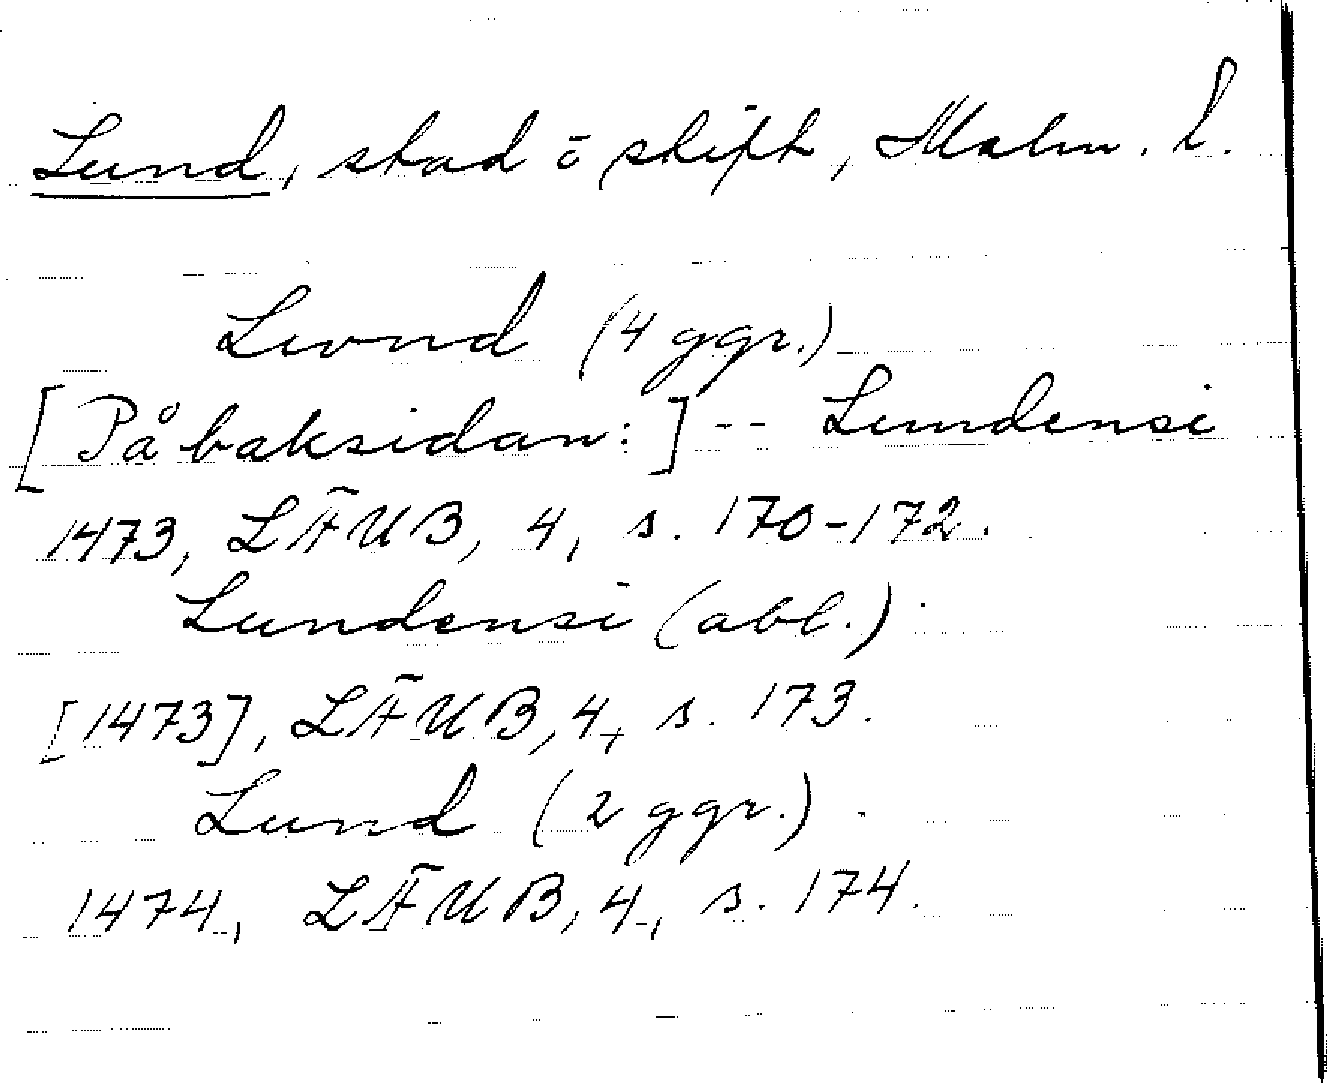 Lund, stad ö skift, Malm. l.
Lvnd (4 ggr.)
[På baksidan:] -- Lundensi
1473, LÄUB, 4, s. 170-172.
Lundensi (abl.)
[1473], LÄUB, 4, s. 173.
Lund (2 ggr.)
1474, LÄUB, 4, s. 174.